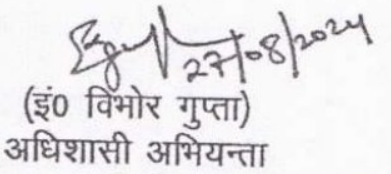 27/08/2024
(इं0 विभोर गुप्ता)
अधिशासी अभियन्ता